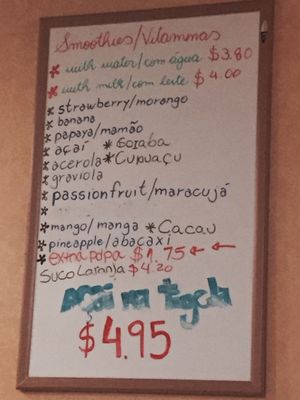 Smoothies/Vitaminas
* with water/com água $3.80
* with milk/com leite $4.00
* strawberry/morango
* banana
* papaya/mamão
* açaí * Goiaba
* acerola * Cupuaçu
* graviola
* passionfruit/maracujá
*
* mango/manga * Cacau
* pineapple/abacaxi
* extra polpa $1.75 ← ←
Suco Laranja $4.20
Açaí na tigela
$4.95